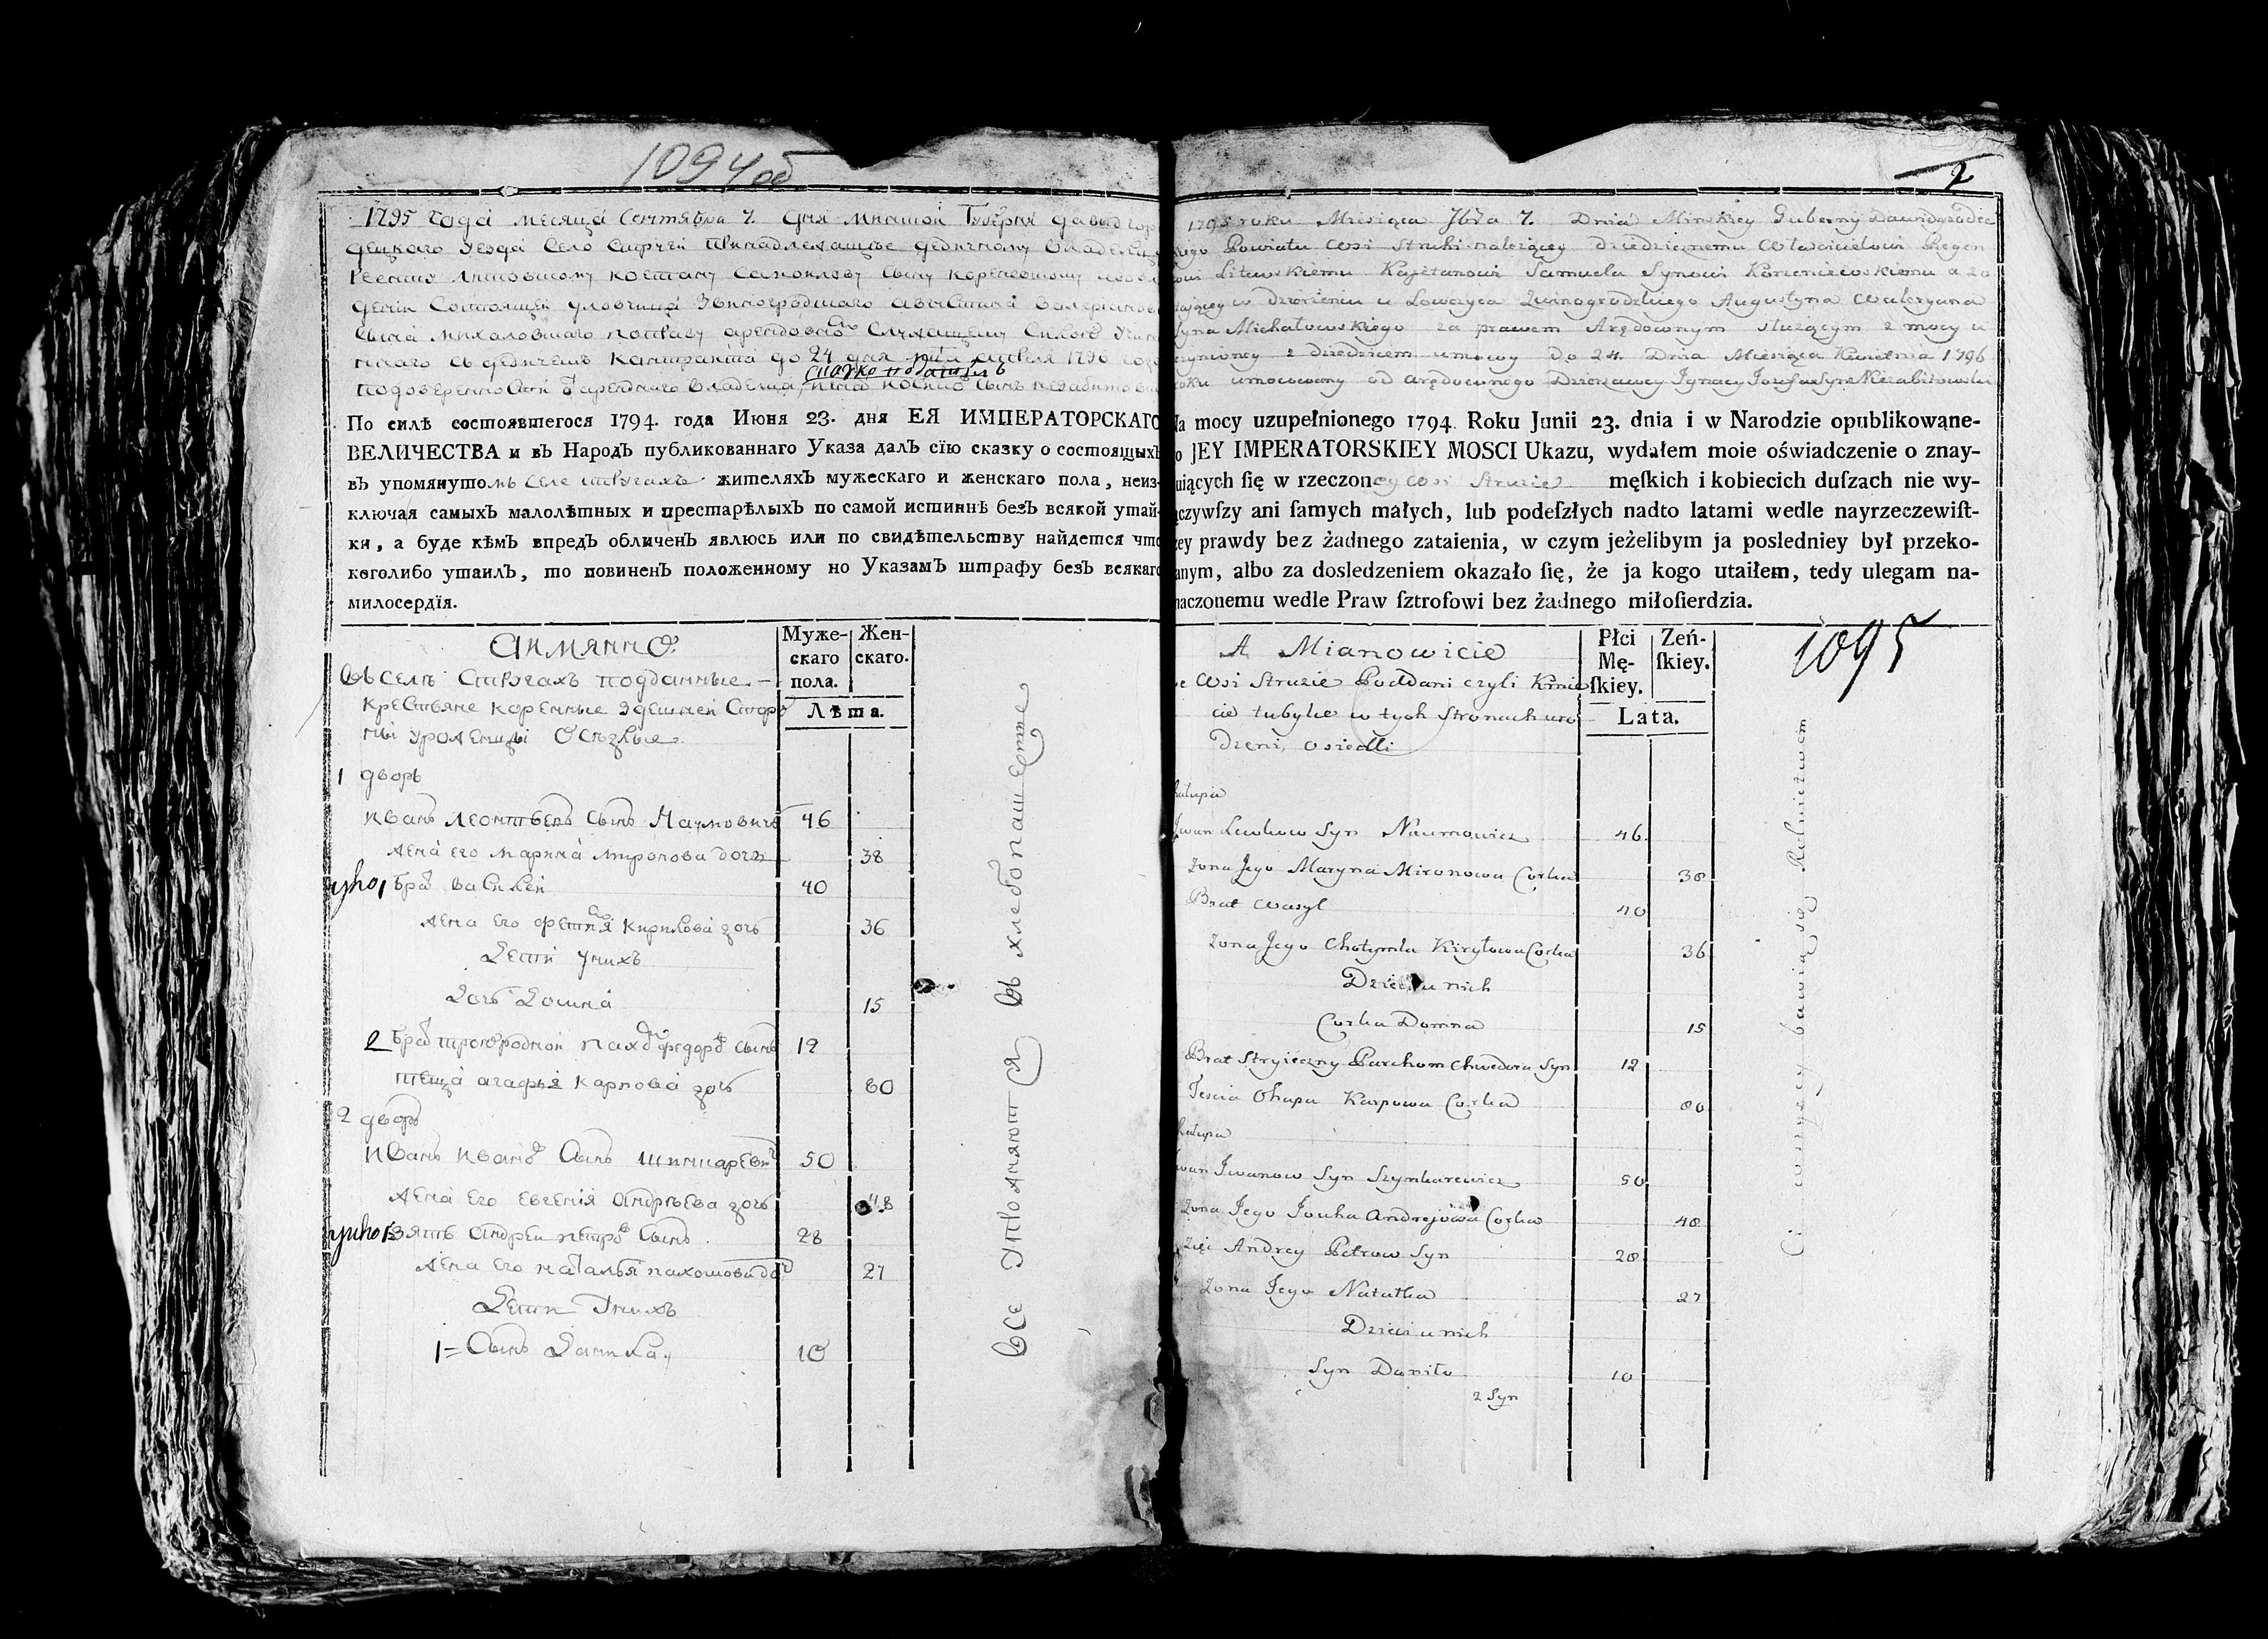 1094 об
1795 года месяца Сентября 7. дня Миншой Губерни давыдгор
децкаго уезда Село Струги принадлежащее дедичному владельцу
Литовшому Коетану Самоилову Сыну Кореневшому
дении Состоящей уловчица Звиногродшаго Авгыстина Валериянова
Сына Михаловшаго по праву арендовно Служащему
с дедичемъ Контракта до 24 дня апреля 1796 года
сказко податель
По силѣ состоявшегося 1794. года Июня 23. дня ЕЯ ИМПЕРАТОРСКАГО
ВЕЛИЧЕСТВА и въ Народъ публикованнаго Указа далъ сїю сказку о состоящыхъ
въ упомянутомъ селе стругахъ жителяхъ мужескаго и женскаго пола, неиз-
ключая самыхъ малолѣтных и престарѣлыхъ по самой истиннѣ безъ всякой утай-
ки, а буде кѣмъ впредь обличенъ явлюсь или по свидѣтельству найдется что
коголибо утаилъ, то повиненъ положенному по Указамъ штрафу безъ всякаго
милосердїя.
Аимянно
Муже-
скаго
пола.
Жен-
скаго.
Лѣта.
Въ селе Стругахъ подданные
крестьяне коренные здешней Сторо
ны уроженцы Оседлые
1 дворъ
Иванъ Леонтьевъ Сынъ Наумовичъ 46
Жена его Марина Миронова дочь 38
Братъ Василей 40
Жена его Фетиния Кирилова дочь 36
Дети у нихъ
Дочь Домна 15
2 Братъ троюродной Пахомъ Федоровъ Сынъ 12
теща Агафья Карпова дочь 80
2 дворъ
Иванъ Ивановъ Сынъ Шинкаревичъ 50
Жена его Евгения Андреева дочь 48
Зять Андрей Петровъ Сынъ 28
Жена его Наталья Пахомова до 27
Дети у нихъ
1= Сынъ Данила 10
все упражняютця въ хлебопашестве
2
1795 roku Miesiąca 7bra 7. Dnia Minskiey Guberny Dawidgrodec
kiego Powiatu wsi Struhi należącey dziedzicznemu Właścicielowi Regen
towi Litewskiemu Kajetanowi Samuela Synowi Korzeniewskiemu a zo
stającey w dzierżeniu u Łowczyca Zwinogrodzkiego Augustyna Waleryana
Syna Michałowskiego za prawem Arędownym służącym z mocy u
czynioney z dziedzicem umowy do 24. Dnia Miesiąca Kwietnia 1796
roku umocowany od arędownego Dzierżawcy Ignacy Jozefa Syn Niezabitowski
Na mocy uzupełnionego 1794. Roku Junii 23. dnia i w Narodzie opublikowane-
go JEY IMPERATORSKIEY MOSCI Ukazu, wydałem moie oświadczenie o znay-
duiących ſię w rzeczoney wsi Struzie męſkich i kobiecich duſzach nie wy-
łączywſzy ani ſamych małych, lub podeſzłych nadto latami wedle nayrzeczewiſt-
ſzey prawdy bez żadnego zataienia, w czym jeżelibym ja posledniey był przeko-
nanym, albo za dosledzeniem okazało ſię, że ja kogo utaiłem, tedy ulegam na-
znaczonemu wedle Praw ſztrofowi bez żadnego miłoſierdzia.
A Mianowicie
Płci
Mę-
ſkiey.
Zeń-
ſkiey.
Lata.
1095
we Wsi Struzie Poddani czyli Kmie
cie tubylce w tych Stronach uro
dzeni, osiedli
Chałupa
Iwan Lewkow Syn Naumowicz 46
Zona Jego Maryna Mironowa Corka 38
Brat Wasyl 40
Zona Jego Chotymla Kiryłowa Corka 36
Dzieci u nich
Corka Domna 15
Brat Stryieczny Parchom Chwedora Syn 12
Teścia Ohapa Karpowa Corka 80
Chałupa
Iwan Iwanow Syn Szynkarewicz 50
Zona Jego Jouha Andrejowa Corka 48
Zięć Andrey Petrow Syn 28
Zona Jego Natałka 27
Dzieci u nich
Syn Daniło 10
2 Syn
Ci wszyscy bawią się Rolnictwem